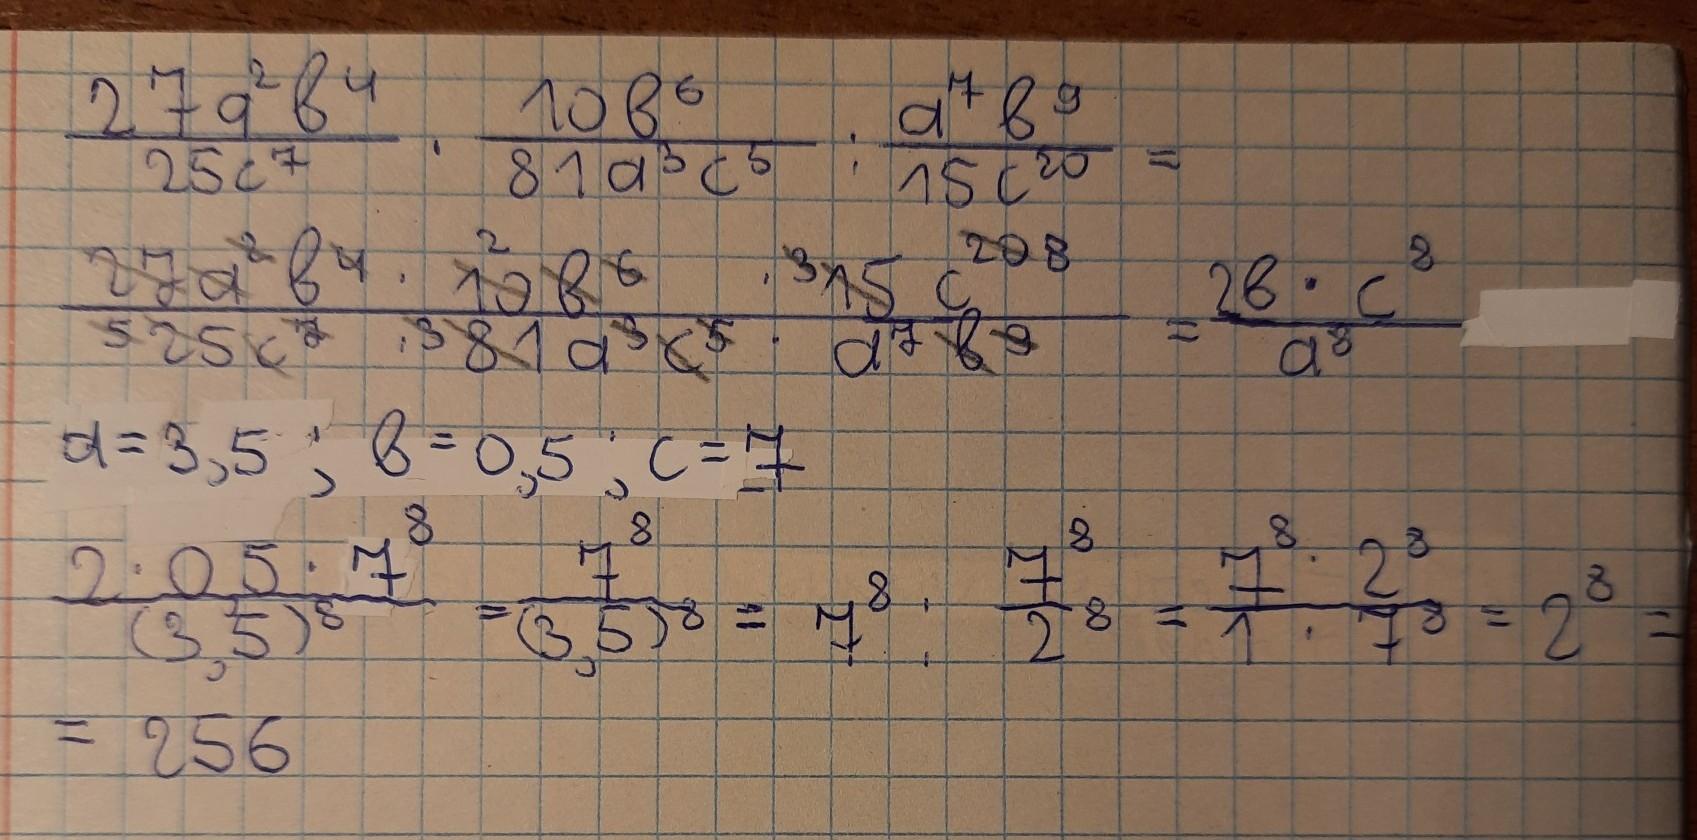 27a²b⁴/25c⁷ · 10b⁶/81a³c⁵ : a⁷b⁹/15c²⁰ =
27a²b⁴ · 10² b⁶ · ³15 c²⁰ ⁸ / ⁵25c⁷ · ³81a³c⁵ · a⁷b⁹ = 2b · c⁸/a⁸
a = 3,5 ; b = 0,5 ; c = 7
2 · 0,5 · 7⁸/(3,5)⁸ = 7⁸/(3,5)⁸ = 7⁸ : 7⁸/2⁸ = 7⁸ · 2⁸/1 · 7⁸ = 2⁸ =
= 256